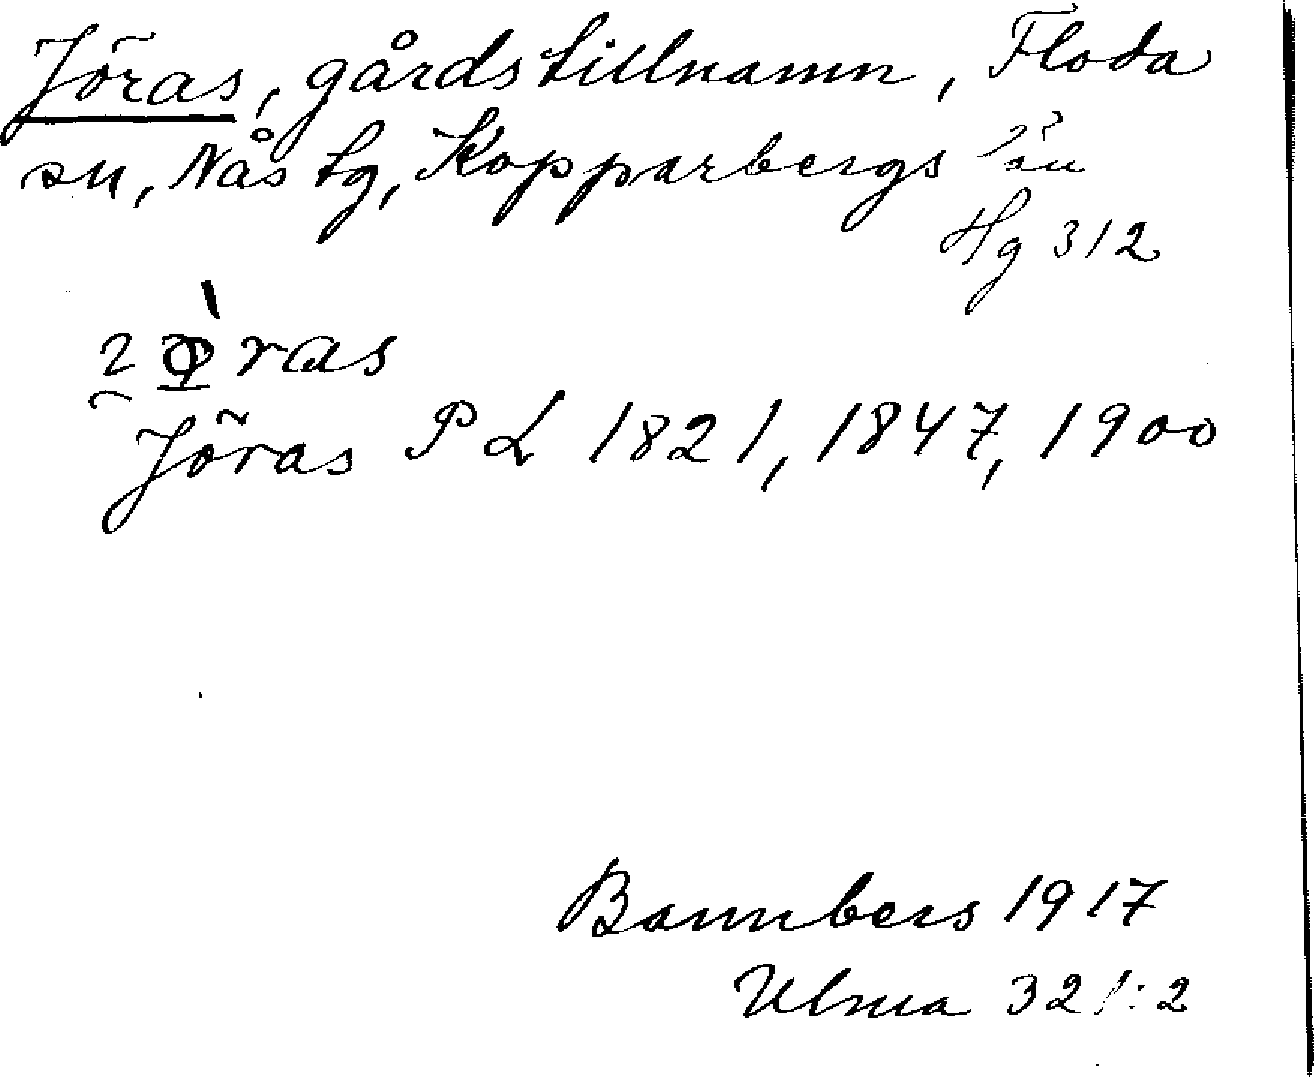 Jöras, gårdstillnamn, Floda
sn, Nås tg, Kopparbergs län
Hg 312
ras
Jöras P L 1821, 1847, 1900
Bannbers 1917
Ulma 321:2